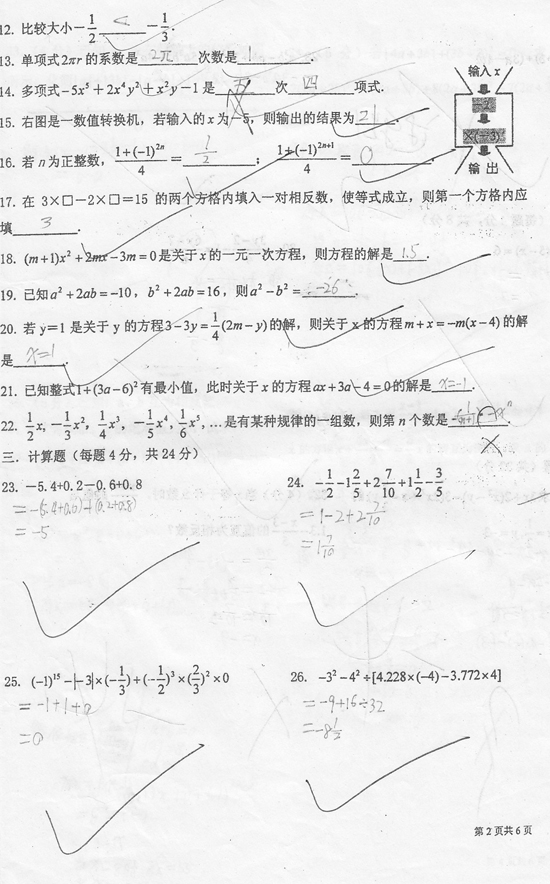 12. 比较大小 -1/2 < -1/3.
13. 单项式 2πr 的系数是 2π 次数是 1.
输入 x
14. 多项式 -5x⁵ + 2x⁴y² + x²y - 1 是 次 四 项式.
15. 右图是一数值转换机，若输入的 x 为 -5，则输出的结果为 21.
×(-3)
16. 若 n 为正整数，(1+(-1)²ⁿ)/4 = 1/2； (1+(-1)²ⁿ⁺¹)/4 = 0.
输 出
17. 在 3×□-2×□=15 的两个方格内填入一对相反数，使等式成立，则第一个方格内应
填 3.
18. (m+1)x² + 2mx - 3m = 0 是关于 x 的一元一次方程，则方程的解是 1.5.
19. 已知 a² + 2ab = -10，b² + 2ab = 16，则 a² - b² = -26.
20. 若 y=1 是关于 y 的方程 3-3y = 1/4(2m-y) 的解，则关于 x 的方程 m+x = -m(x-4) 的解
是 x=1.
21. 已知整式 1+(3a-6)² 有最小值，此时关于 x 的方程 ax+3a-4=0 的解是 x=-1.
22. 1/2x, -1/3x², 1/4x³, -1/5x⁴, 1/6x⁵, … 是有某种规律的一组数，则第 n 个数是
三. 计算题（每题 4 分，共 24 分）
23. -5.4+0.2-0.6+0.8
=-(5.4+0.6)+(0.2+0.8)
=-5
24. -1/2-1 2/5+2 7/10+1 1/2-3/5
=1-2+2 7/10
=1 7/10
25. (-1)¹⁵-|-3|×(-1/3)+(-1/2)³×(2/3)²×0
=-1+1+0
=0
26. -3²-4²÷[4.228×(-4)-3.772×4]
=-9+16÷32
=-8 1/2
第 2 页共 6 页